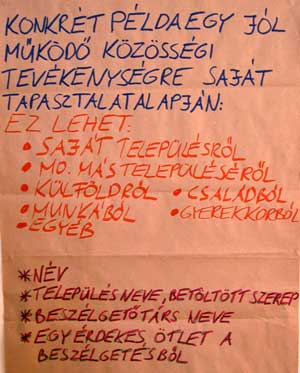 KONKRÉT PÉLDA EGY JÓL
MŰKÖDŐ KÖZÖSSÉGI
TEVÉKENYSÉGRE SAJÁT
TAPASZTALAT ALAPJÁN:
EZ LEHET:
• SAJÁT TELEPÜLÉSRŐL
• MO. MÁS TELEPÜLÉSÉRŐL
• KÜLFÖLDRŐL • CSALÁDBÓL
• MUNKÁBÓL • GYEREKKORBÓL
• EGYÉB
* NÉV
* TELEPÜLÉS NEVE, BETÖLTÖTT SZEREP
* BESZÉLGETŐTÁRS NEVE
* EGY ÉRDEKES ÖTLET A
BESZÉLGETÉSBŐL